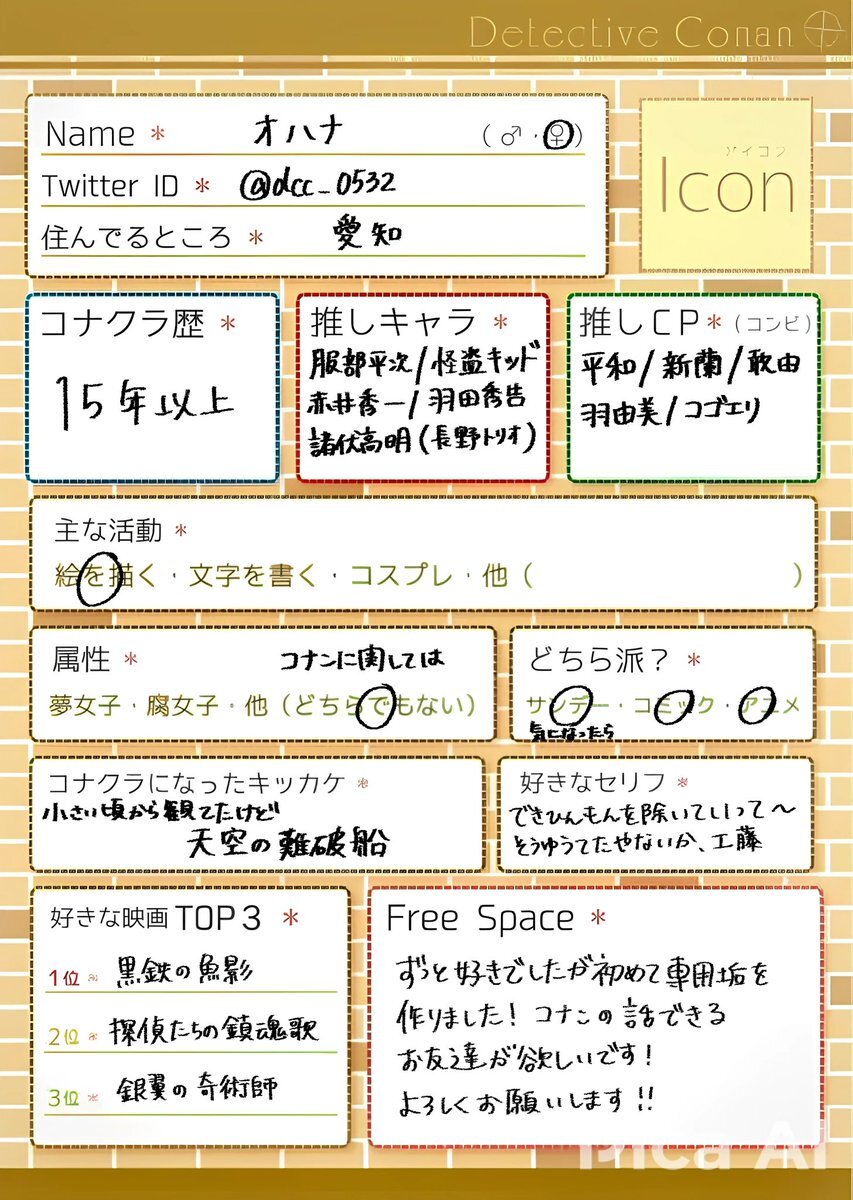 Detective Conan
Name * オハナ (♂・♀)
Twitter ID * @dcc_0532
住んでるところ * 愛知
アイコン
Icon
コナクラ歴 *
15年以上
推しキャラ *
服部平次/怪盗キッド
赤井秀一/羽田秀吉
諸伏高明(長野トリオ)
推しCP*(コンビ)
平和/新蘭/敢由
羽由美/コゴエリ
主な活動 *
絵を描く・文字を書く・コスプレ・他( )
属性 * コナンに関しては
夢女子・腐女子・他(どちらでもない)
どちら派? *
サンデー・コミック・アニメ
気になったら
コナクラになったキッカケ *
小さい頃から観てたけど
天空の難破船
好きなセリフ *
できひんもんを除いていって〜
そうゆうてたやないか、工藤
好きな映画TOP3 *
1位 * 黒鉄の魚影
2位 * 探偵たちの鎮魂歌
3位 * 銀翼の奇術師
Free Space *
ずっと好きでしたが初めて専用垢を
作りました!コナンの話できる
お友達が欲しいです!
よろしくお願いします!!
Pica AI